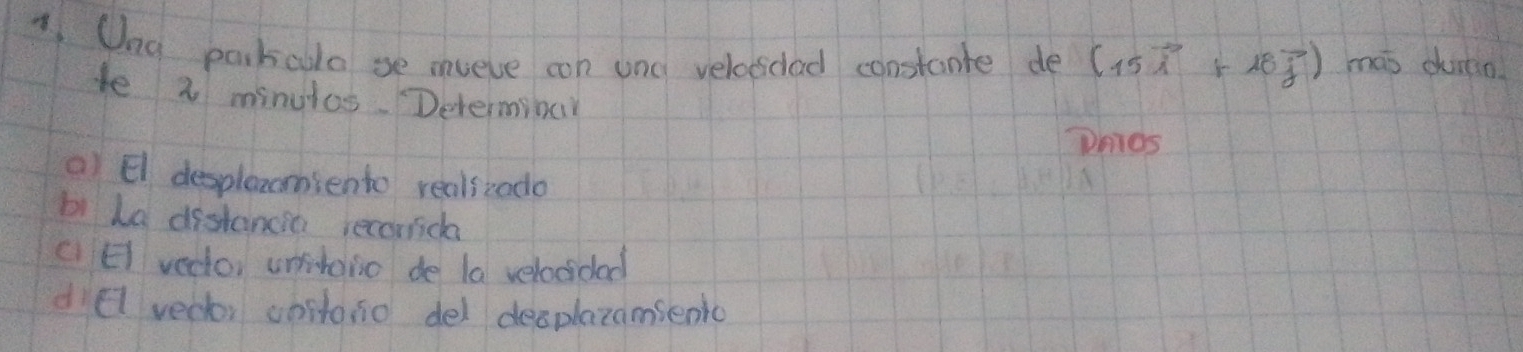 1. Una particula se mueve con una velocidad constante de (15i⃗ + 18j⃗) m/s duran
te 2 minutos. Determinar
Datos
a) El desplazamiento realizado
b) La distancia recorrida
c) El vector unitario de la velocidad
d) El vector unitario del desplazamiento